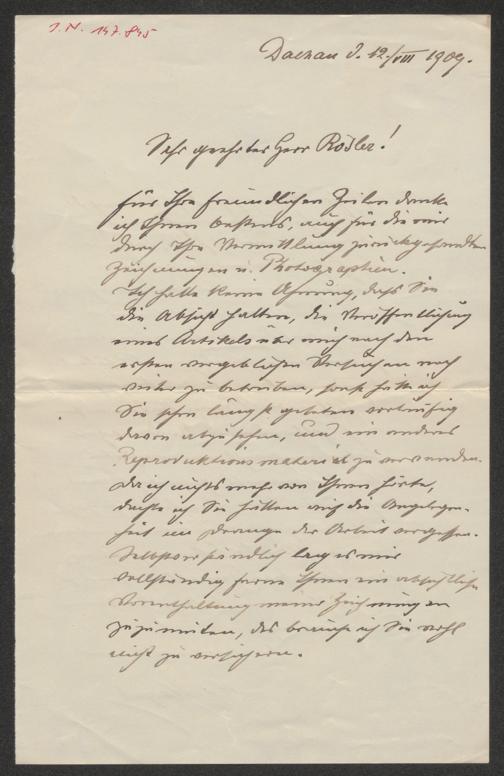 I.N. 147.845
Dachau d. 12./VIII 1909.
Sehr geehrter Herr Rösler!
Für Ihre freundlichen Zeilen danke
ich Ihnen bestens, auch für die mir
durch Ihre Vermittlung zurückgesandten
Zeichnungen u. Photographien.
Ich hatte keine Ahnung, daß Sie
die Absicht hatten, die Veröffentlichung
eines Artikels über mich nach den
ersten vergeblichen Versuchen noch
weiter zu betreiben, sonst hätte ich
Sie schon längst gebeten vorläufig
davon abzusehen, und ein anderes
Reproduktionsmaterial zu verwenden.
Da ich nichts mehr von Ihnen hörte,
dachte ich Sie hätten auf die Angelegen-
heit im Drange der Arbeit vergessen.
Selbstverständlich lag es mir
vollständig ferne Ihnen ein absichtliche
Vorenthaltung meiner Zeichnungen
zuzumuten, das brauche ich Sie wohl
nicht zu versichern.